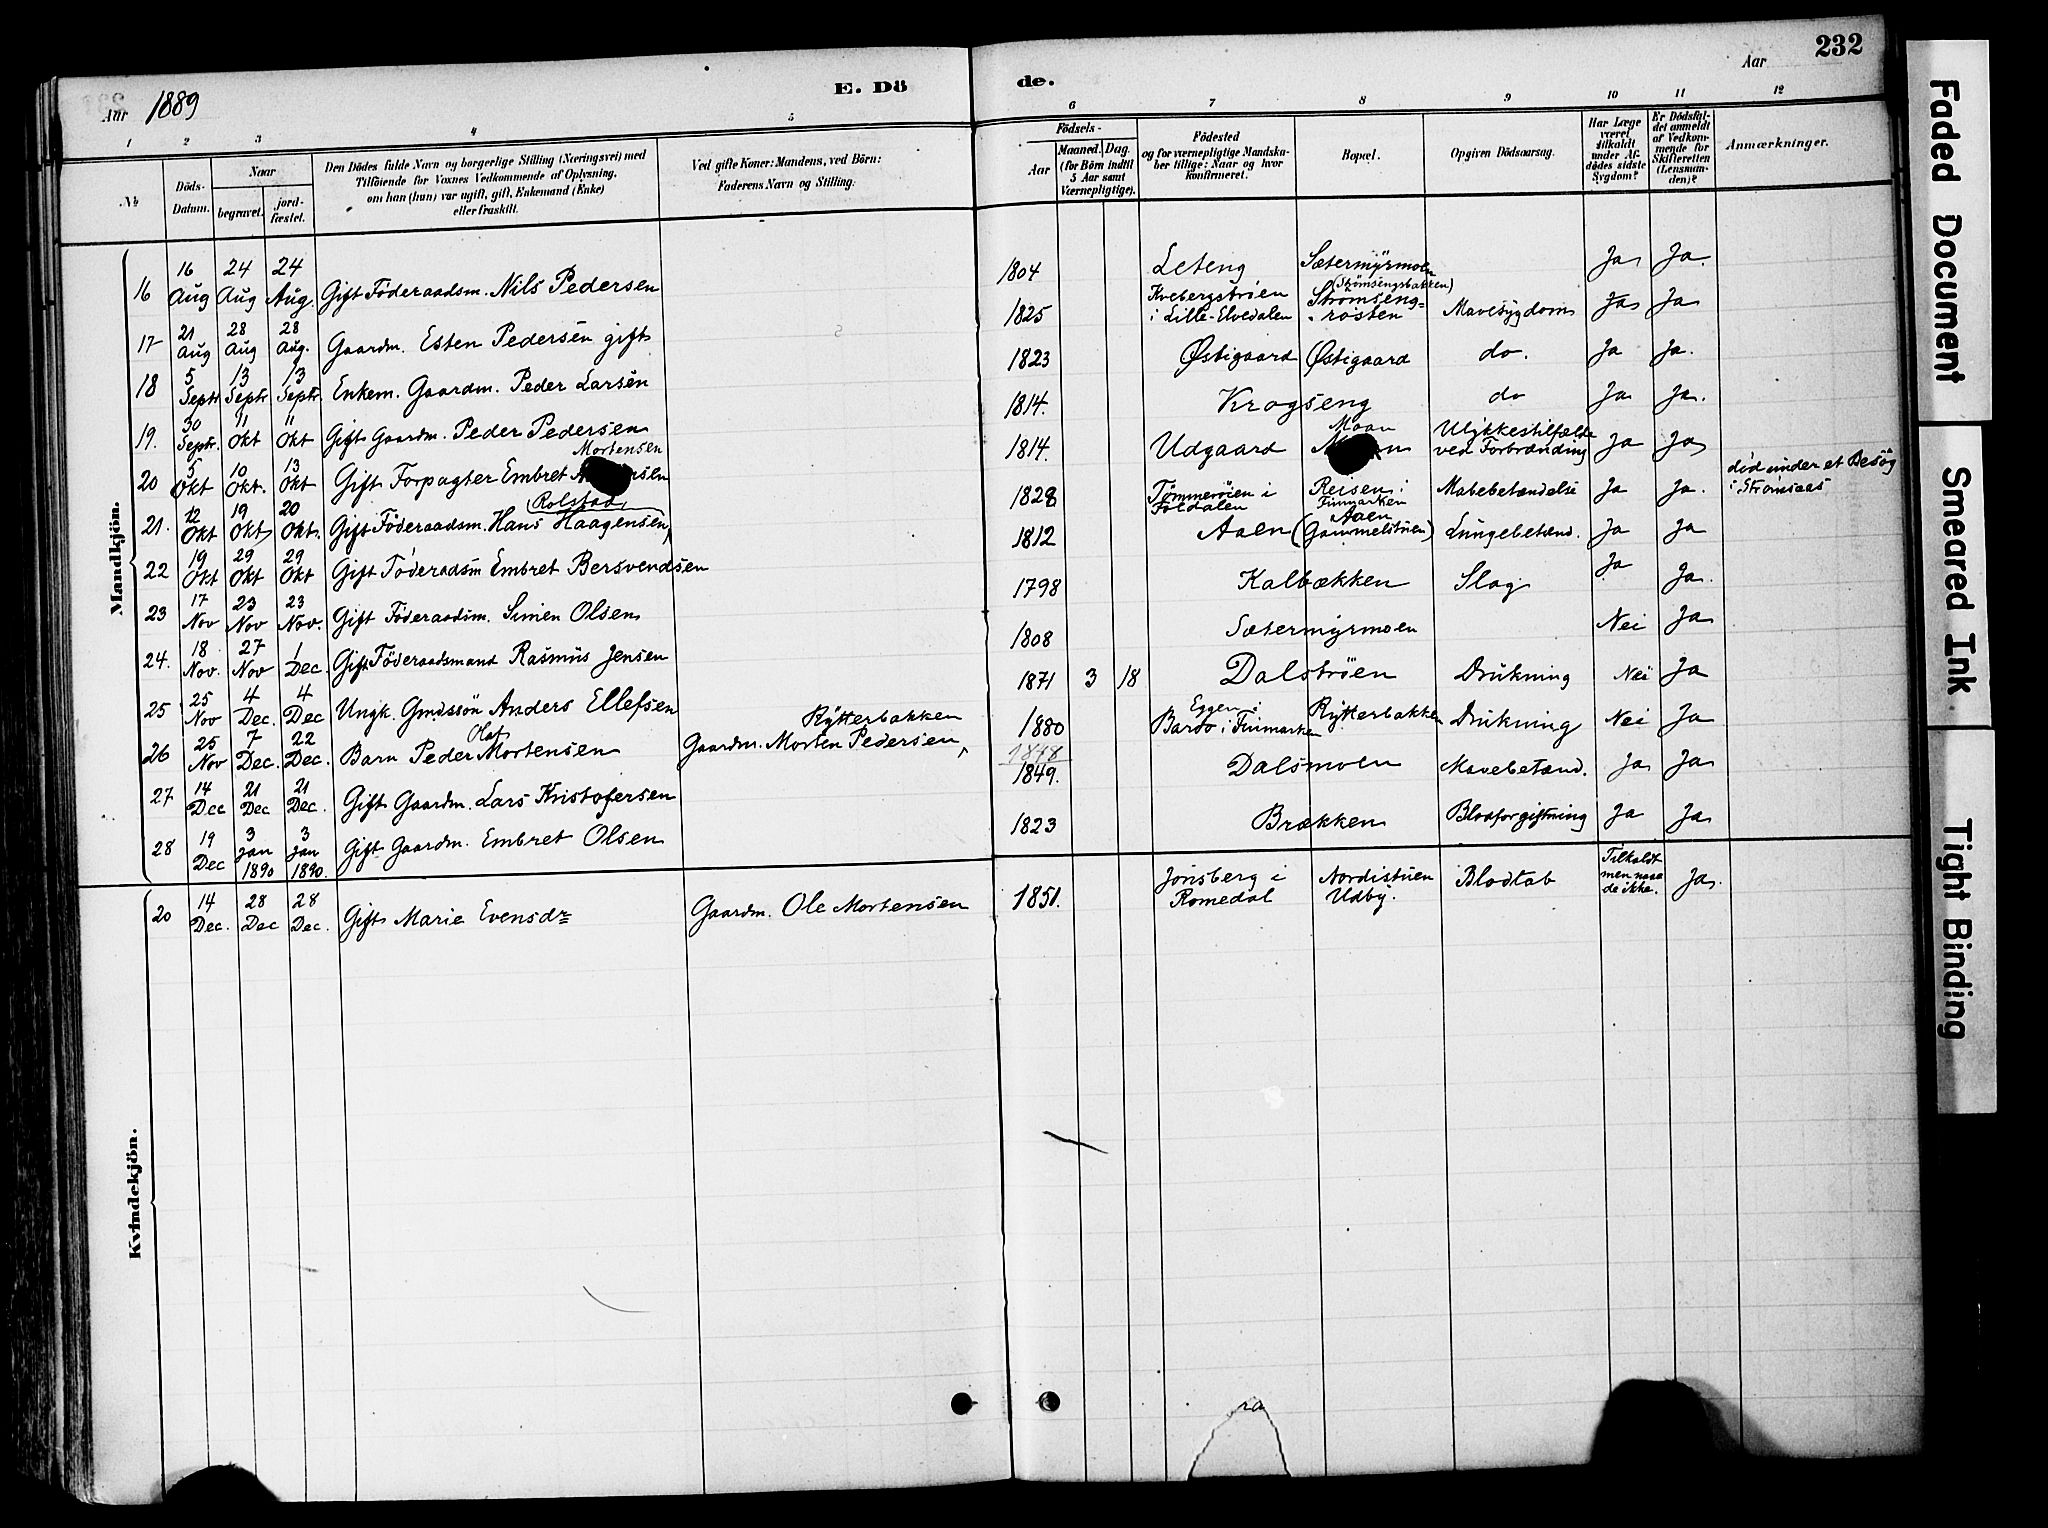 232
Aar 1889
E. Dö
de.
Aar
1 2 3 4 5 6 7 8 9 10 11 12
№
Döds-Datum.
Naar
begravet.
jord-fæstet.
Den Dödes fulde Navn og borgerlige Stilling (Næringsvei) med
Tilföiende for Voxnes Vedkommende af Oplysning,
om han (hun) var ugift, gift, Enkemand (Enke)
eller fraskilt.
Ved gifte Koner: Mandens, ved Börn:
Faderens Navn og Stilling.
Födsels-
Aar
Maaned. Dag.
(for Börn indtil
5 Aar samt
Værnepligtige).
Födested
og for værnepligtige Mandska-
ber tillige: Naar og hvor
konfirmeret.
Bopæl.
Opgiven Dödsaarsag.
Har Læge
været
tilkaldt
under Af-
dödes sidste
Sygdom?
Er Dödsfal-
det anmeldt
af Vedkom-
mende for
Skifteretten
(Lensman-
den)?
Anmærkninger.
Mandkjön.
16 16 Aug 24 Aug 24 Aug. Gift Föderaadsm. Nils Pedersen 1804 Leteng Sætermyrmoen Ja Ja.
17 21 Aug 28 Aug 28 Aug. Gaardm. Esten Pedersen gift 1825 Kvebergströen i Lille-Elvedalen (Strömsengsbakken) Strömseng=røsten Mavesygdom Ja Ja
18 5 Septr. 13 Septr 13 Septr. Enkem. Gaardm. Peder Larsen 1823 Østigaard Østigaard do. Ja Ja.
19. 30 Septr. 11 Okt 11 Okt Gift Gaardm. Peder Pedersen 1814. Krogseng do Ja Ja.
20 5 Okt 10 Okt. 13 Okt Gift Forpagter Embret Mortensen 1814. Udgaard Moan Ulykkestilfælde ved Forbrænding Ja Ja
21. 12 Okt 19 Okt 20 Okt. Gift Föderaadsm. Hans Haagensen, Rolstad 1828 Tömmeröien i Foldalen Reisen i Finmarken Mavebetændelse Ja Ja. död under et Besög i Strömsaas
22 19 Okt 29 Okt 29 Okt Gift Föderadsm Embret Bersvendsen 1812 Aaen Aaen (Gammelstuen) Lungebetænd. Ja Ja
23 17 Nov 23 Nov 23 Nov. Gift Föderaadsm. Simen Olsen 1798 Kalbækken Slag Ja Ja.
24. 18 Nov. 27 Nov 1 Dec. Gift Föderaadsmand Rasmus Jensen 1808 Sætermyrmoen Nei Ja
25 25 Nov 4 Dec. 4 Dec Ungk. Gmdssön Anders Ellefsen 1871 3 18 Dalströen Drukning Nei Ja
26 25 Nov 7 Dec. 22 Dec. Barn Peder Olaf Mortensen Gaardm. Morten Pedersen, Rytterbakken 1880 Eggen i Bardo i Finmarken Rytterbakken Drukning Nei Ja
27 14 Dec 21 Dec 21 Dec. Gift Gaardm. Lars Kristofersen 1848 1849. Dalsmoen Mavebetænd. Ja Ja
28 19 Dec 3 Jan 1890 3 Jan 1890. Gift Gaardm. Embret Olsen 1823 Brækken Blodforgiftning Ja Ja
Kvindekjön.
20 14 Dec. 28 Dec 28 Dec. Gift Marie Evensdr Gaardm. Ole Mortensen 1851. Jönsberg i Romedal Nordistuen Udby. Blodtab Tilkaldt men naaede ikke. Ja.
Faded Document
Smeared Ink
Tight Binding